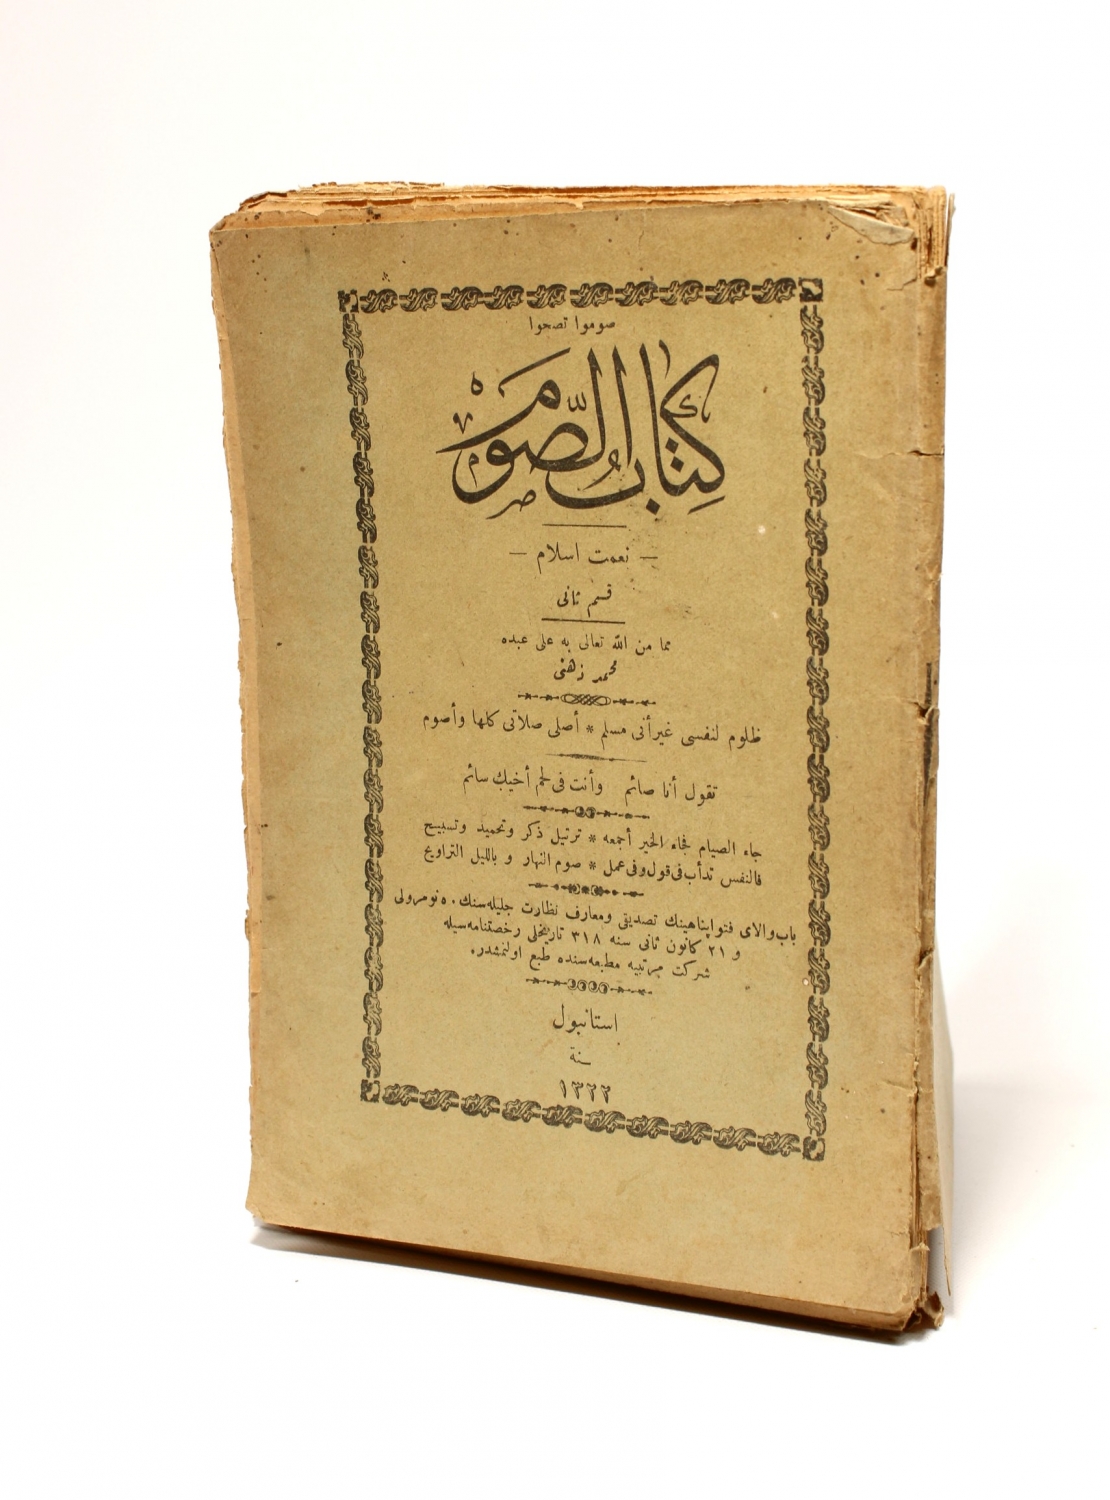 صوموا تصحوا
كتاب الصوم
— نعمت اسلام —
قسم ثانى
مما من الله تعالى به على عبده
محمد ذهنى
ظلوم لنفسى غير أنى مسلم * أصلى صلاتى كلها وأصوم
تقول أنا صائم وأنت فى لحم أخيك سائم
جاء الصيام فجاء الخير أجمعه * ترتيل ذكر وتحميد وتسبيح
فالنفس تدأب فى قول وفى عمل * صوم النهار وبالليل التراويح
باب والاى فتواپناهينك تصديقى ومعارف نظارت جليله‌سنك ٥٠ نومرولى
و ٢١ كانون ثانى سنه ٣١٨ تاريخلى رخصتنامه‌سيله
شركت مرتبيه مطبعه‌سنده طبع اولنمشدر.
استانبول
سنة
١٣٢٢